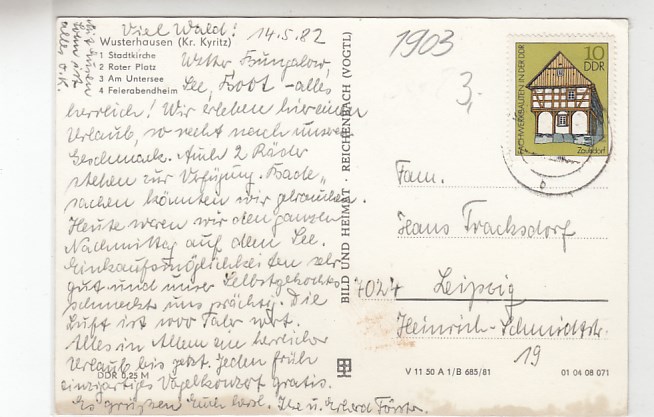 Viel Wald!
14.5.82
Wusterhausen (Kr. Kyritz)
1 Stadtkirche
2 Roter Platz
3 Am Untersee
4 Feierabendheim
Wetter, Bungalow,
See, Boot - alles
herrlich! Wir erleben hier einen
Urlaub, so recht nach unserem
Geschmack. Auch 2 Räder
stehen zur Verfügung. Bade-
sachen könnten wir gebrauchen.
Heute waren wir den ganzen
Nachmittag auf dem See.
Einkaufsmöglichkeiten sehr
gut und unser Selbstgekochtes
schmeckt uns prächtig. Die
Luft ist 1000 Taler wert.
Alles in Allem ein herrlicher
Urlaub bis jetzt. Jeden früh
einzigartiges Vogelkonzert gratis.
Es grüßen Euch herzl. Ilse u. Erhard Förster
alles o.k.
DDR 0,25 M
BILD UND HEIMAT · REICHENBACH (VOGTL)
1903
3,-
10
DDR
FACHWERKBAUTEN IN DER DDR
Zaulsdorf
b
Fam.
Hans Tracksdorf
7024 Leipzig
Heinrich-Schmidtstr.
19
V 11 50 A 1/B 685/81
01 04 08 071